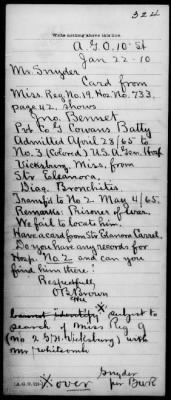 324
Write nothing above this line.
A.G.O. 10" St
Jan 22-10
Mr. Snyder
Card from
Miss. Reg No. 19. Hos. No. 733.
page 42. shows
Jno. Bennet
Pvt Co G Cowans Batty
Admitted April 28/65 to
No. 3 (Colored) U.S.A. Gen. Hosp
Vicksburg, Miss. from
Str. Eleanora.
Diag. Bronchitis.
Transf'd to No 2 May 4/65.
Remarks: Prisoner of War.
We fail to locate him.
Have a card from Str. Elenora Carrel.
Do you have any records for
Hosp. No. 2 and can you
find him there?
Respectfully
O B Brown
cannot identify subject to
search of Miss Reg 9
(No 2 Vicksburg) with
Mr Whitcomb
Snyder
per BWR
A.G.O.
X over